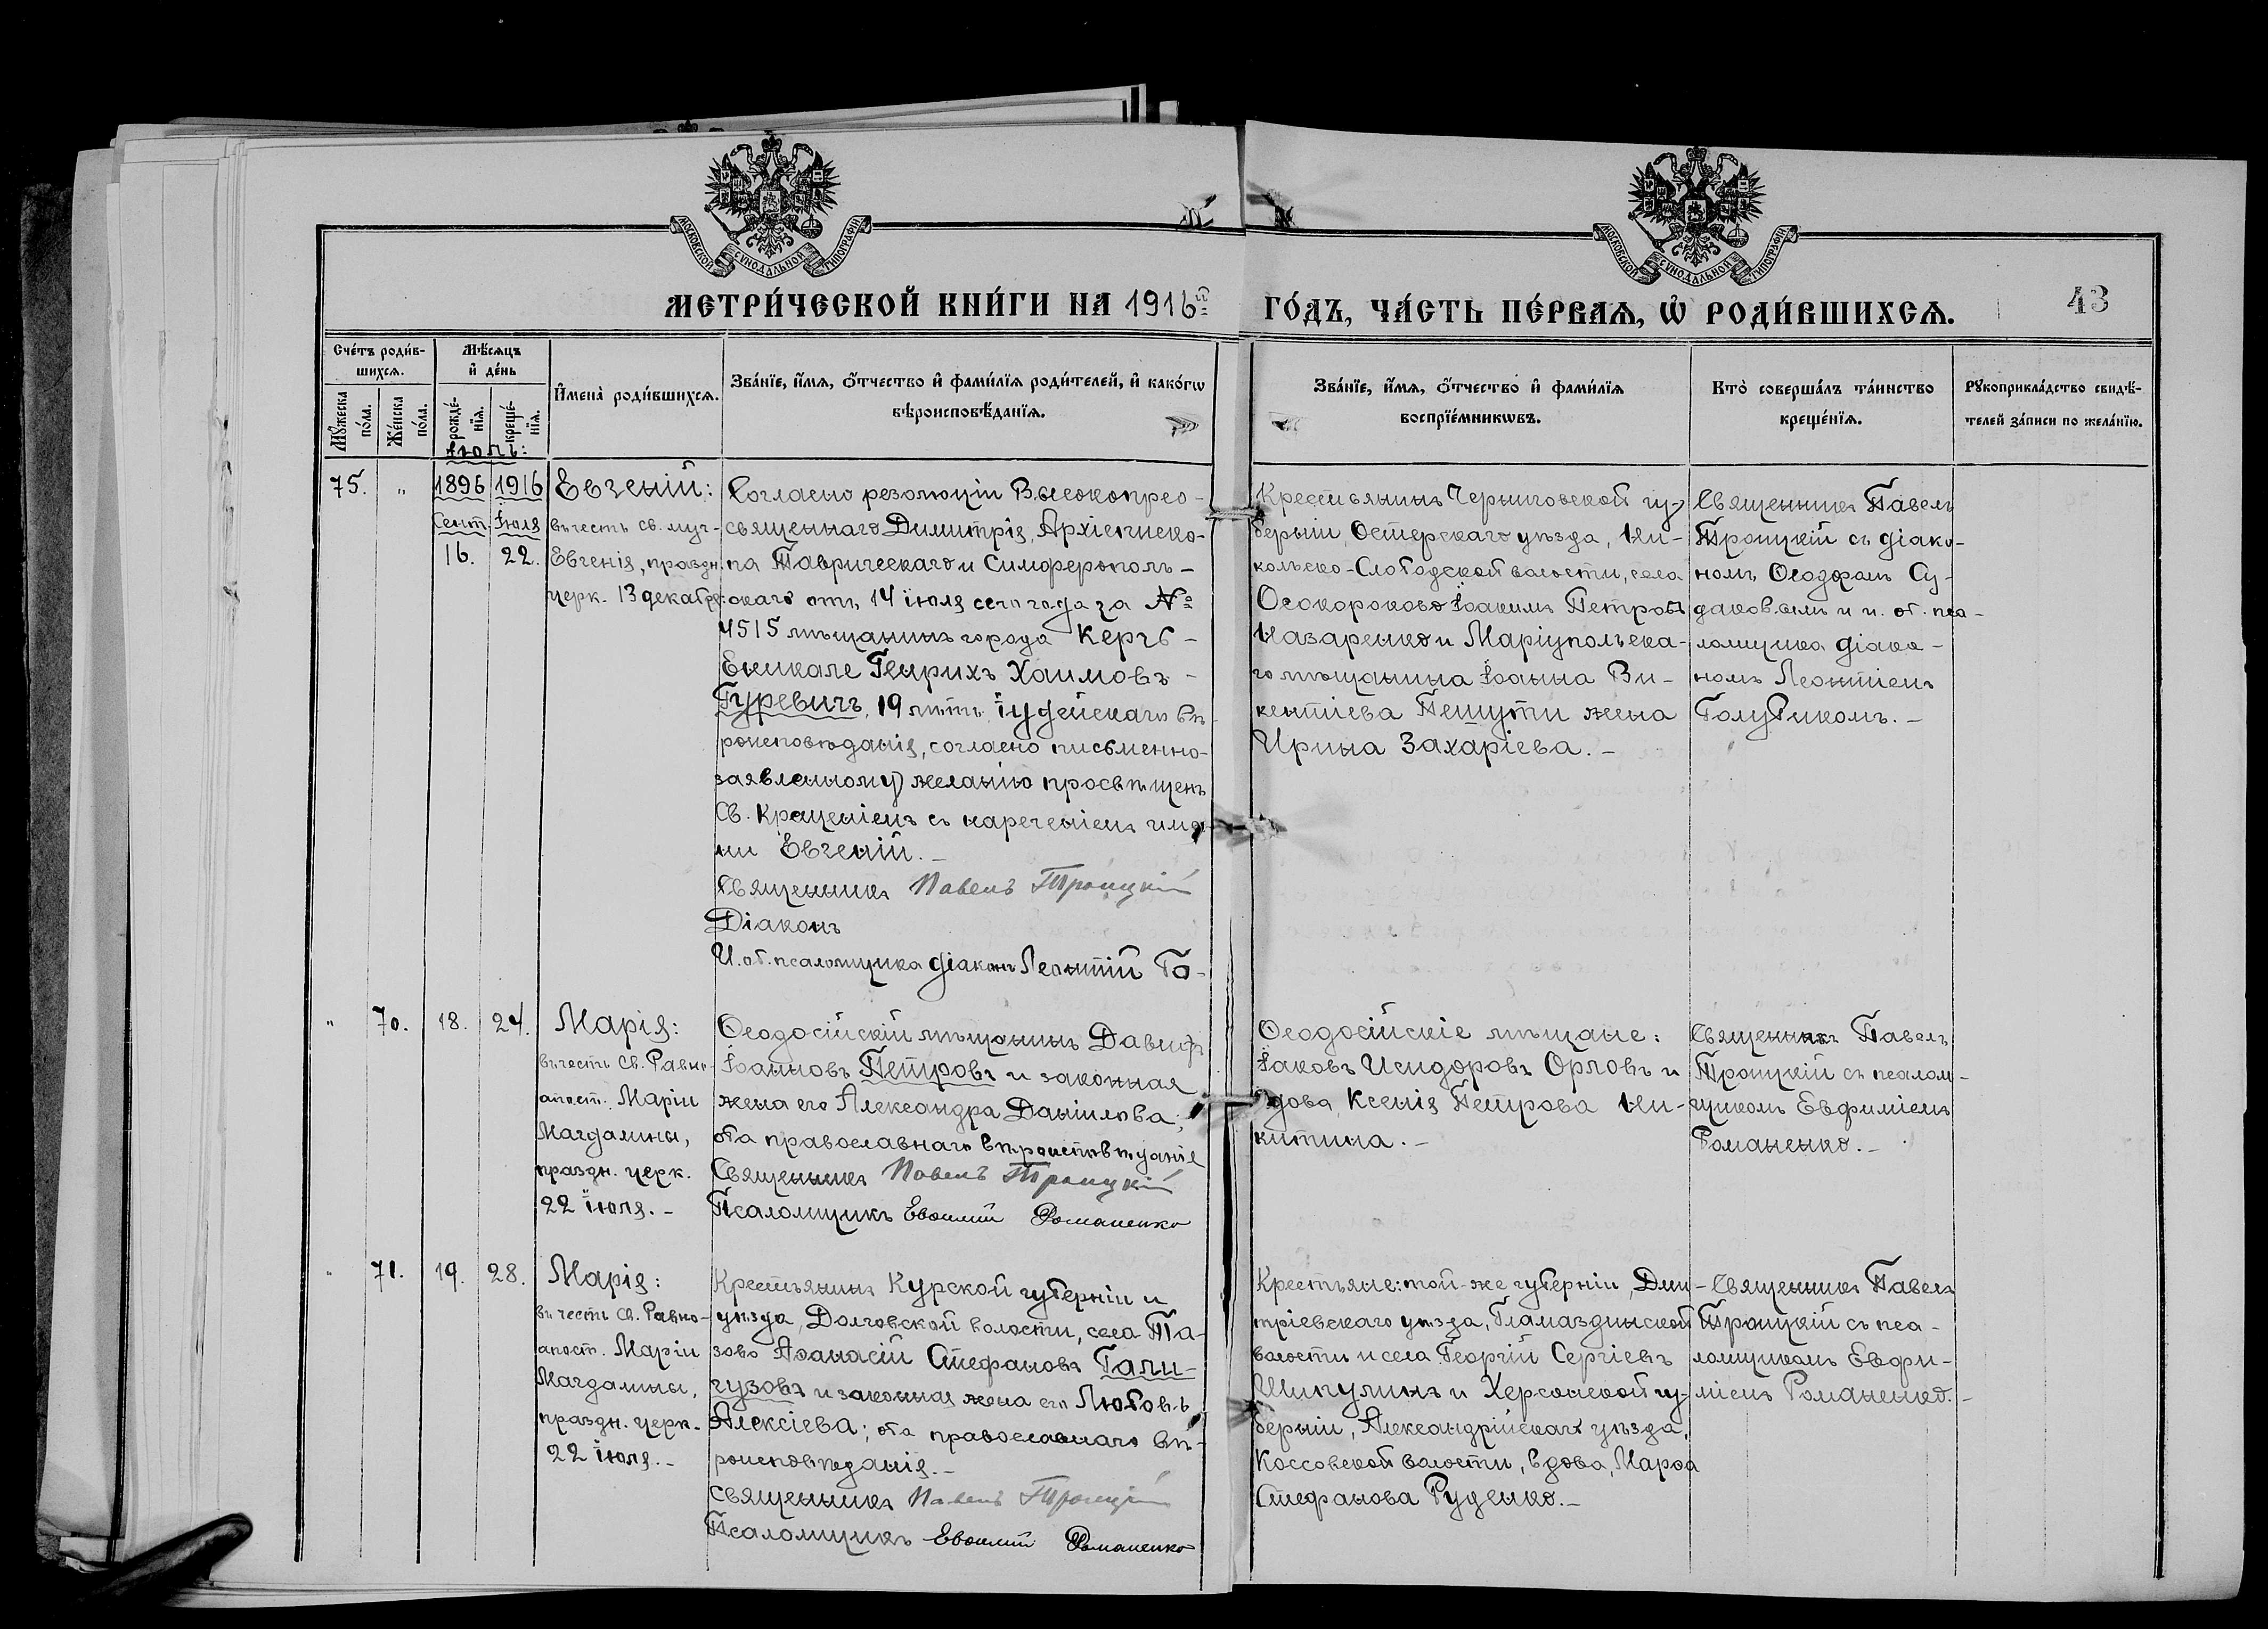 МОСКОВСКОЙ СУНОДАЛЬНОЙ ТИПОГРАФІИ
МОСКОВСКОЙ СУНОДАЛЬНОЙ ТИПОГРАФІИ
МЕТРИ́ЧЕСКОЙ КНИ́ГИ НА 1916й
ГО́ДЪ, ЧА́СТЬ ПЕ́РВАѦ, Ѡ҆ РОДИ́ВШИХСѦ.
43
Сче́тъ роди́в-
шихсѧ.
Мꙋ́жеска по́ла.
Же́нска по́ла.
Мѣ́сѧцъ
и҆ де́нь
рожде́-
нїѧ.
креще́-
нїѧ.
И҆мена̀ роди́вшихсѧ.
Зва́нїе, и҆́мѧ, ѻ҆́тчество и҆ фами́лїѧ роди́телей, и҆ како́гѡ
вѣроисповѣ́данїѧ.
Зва́нїе, и҆́мѧ, ѻ҆́тчество и҆ фами́лїѧ
воспрїе́мникѡвъ.
Кто̀ соверша́лъ та́инство
креще́нїѧ.
Рꙋкоприкла́дство свидѣ́-
телей за́писи по жела́нїю.
Іюль:
75.
"
1896
Сент.
16.
1916
Іюля
22.
Евгеній:
въ честь св. муч.
Евгенія, праздн.
церк. 13 декабря.
Согласно резолюціи Высокопрео-
священнаго Димитрія, Архіеписко-
па Таврическаго и Симферополь-
скаго отъ 14 іюля сего года за №
4515 мѣщанинъ города Керчь-
Еникале Генрихъ Хаимовъ -
Гуревичъ, 19 лѣтъ, іудейскаго вѣ-
роисповѣданія, согласно письменно-
заявленному желанію просвѣщенъ
Св. Крещеніемъ съ нареченіемъ име-
ни Евгеній. -
Священникъ Павелъ Троицкій
Діаконъ
И. об. псаломщика діаконъ Леонтій Го-
Крестьянинъ Черниговской гу-
берніи, Остерскаго уѣзда, Ни-
кольско-Слободской волости, села
Осокороково Іоакимъ Петровъ
Назаренко и Маріупольска-
го мѣщанина Іоанна Ви-
кентіева Пешути жена
Ирина Захаріева. -
Священникъ Павелъ
Троицкій съ діако-
номъ Ѳеодоромъ Су-
даковымъ и и. об. пса-
ломщика діако-
номъ Леонтіемъ
Голубикомъ. -
"
70.
18.
24.
Марія:
въ честь Св. Равно-
апост. Маріи
Магдалины,
праздн. церк.
22 іюля. -
Ѳеодосійскій мѣщанинъ Давидъ
Іоанновъ Петровъ и законная
жена его Александра Даніилова;
оба православнаго вѣроисповѣданія
Священникъ Павелъ Троицкій
Псаломщикъ Евѳимій Романенко
Ѳеодосійскіе мѣщане:
Іаковъ Исидоровъ Орловъ и
вдова, Ксенія Петрова Ни-
китина. -
Священникъ Павелъ
Троицкій съ псалом-
щикомъ Евфиміемъ
Романенко. -
"
71.
19.
28.
Марія:
въ честь Св. Равно-
апост. Маріи
Магдалины,
праздн. церк.
22 іюля. -
Крестьянинъ Курской губерніи и
уѣзда, Долговской волости, села Та-
зово Аѳанасій Стефановъ Гали-
гузовъ и законная жена его Любовь
Алексіева; оба православнаго вѣ-
роисповѣданія. -
Священникъ Павелъ Троицкій
Псаломщикъ Евѳимій Романенко
Крестьяне: той-же губерніи, Дми-
тріевскаго уѣзда, Гламаздинской
волости и села Георгій Сергіевъ
Шипулинъ и Херсонской гу-
берніи, Александрійскаго уѣзда,
Коссовской волости, вдова, Марѳа
Стефанова Руденко. -
Священникъ Павелъ
Троицкій съ пса-
ломщикомъ Евфи-
міемъ Романенко. -